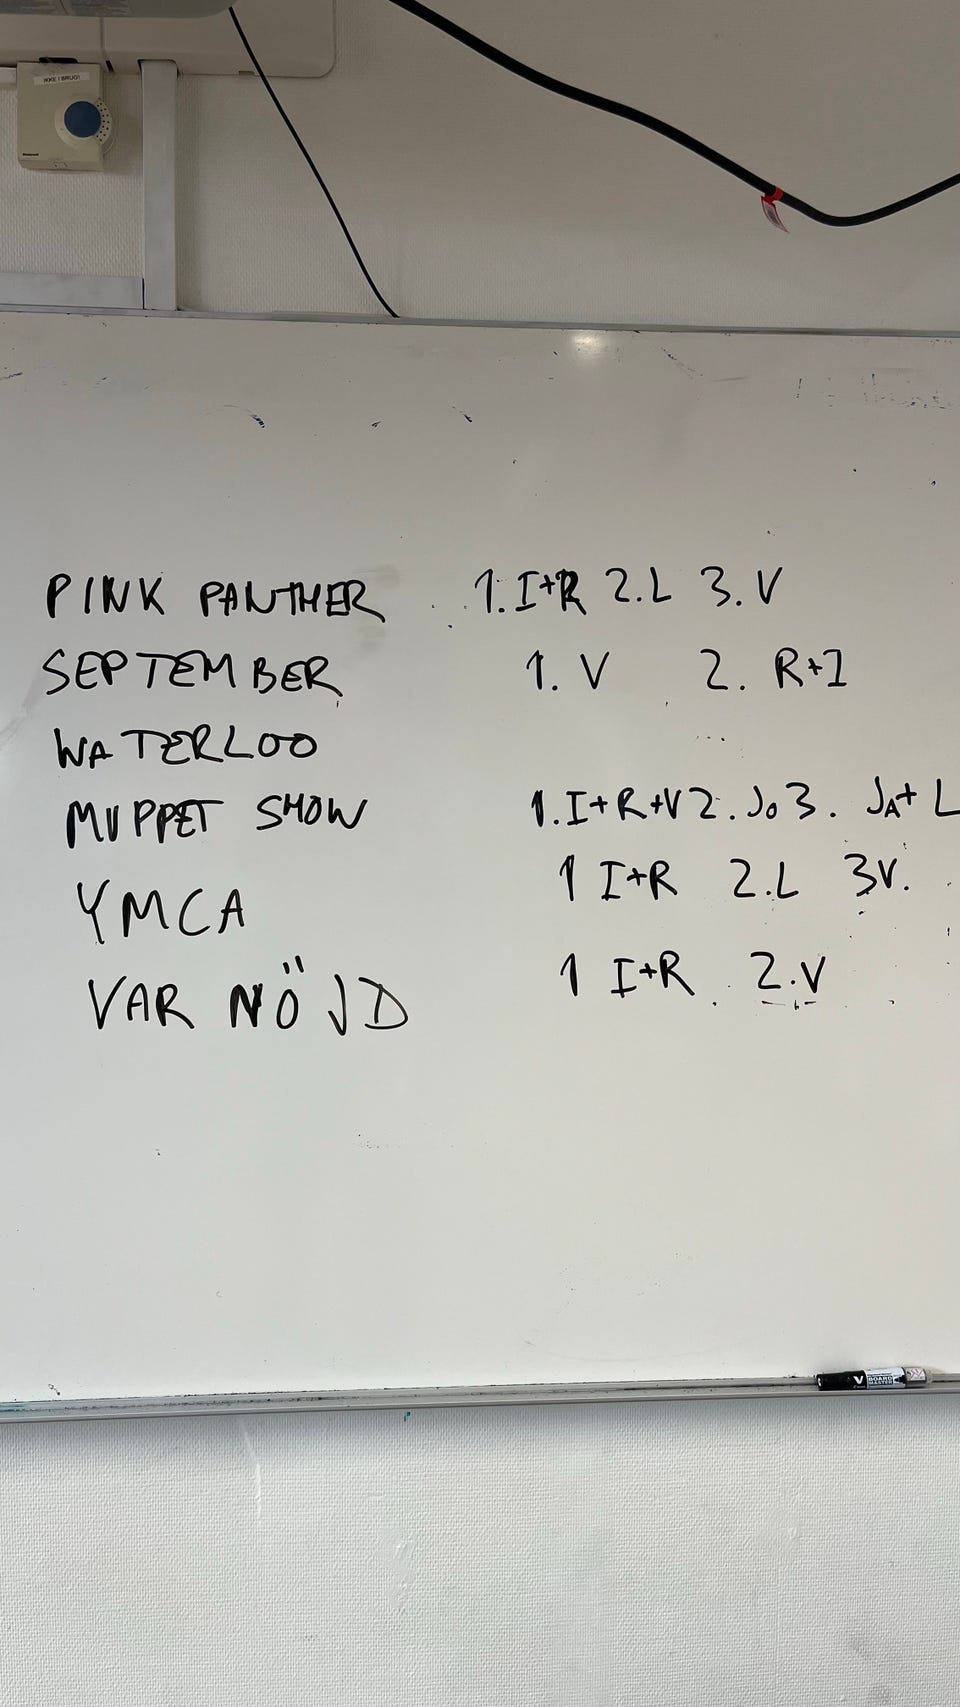 IKKE I BRUG!
PINK PANTHER 1. I+R 2. L 3. V
SEPTEMBER 1. V 2. R+I
WATERLOO
MUPPET SHOW 1. I+R+V 2. Jo 3. JA+ L
YMCA 1 I+R 2. L 3V.
VAR NÖJD 1 I+R 2. V
V BOARD MASTER